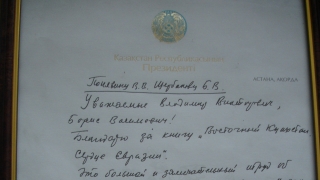 Қазақстан Республикасының
Президенті
АСТАНА, АҚОРДА
В.В. Щербакову Б.В.
Уважаемые Владимир Викторович,
Борис Васильевич!
Благодарю за книгу "Восточный Казахстан
Сердце Евразии".
Это большой и замечательный об